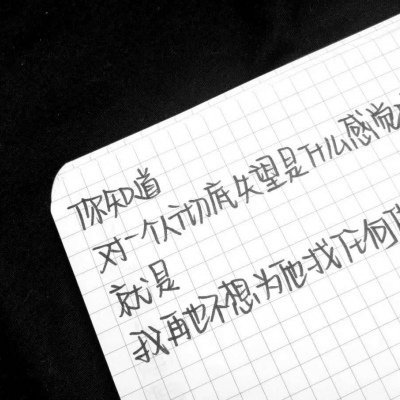 你知道
对一个人彻底失望是什么感觉
就是
我再也不想为他找任何